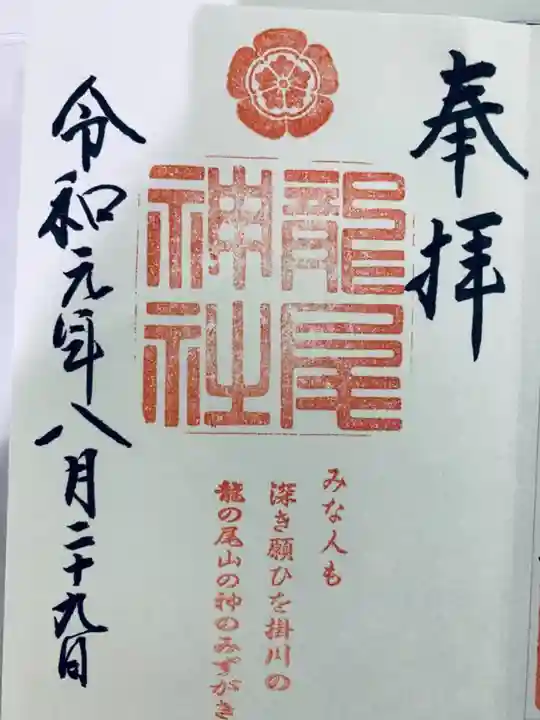 奉拝
龍尾
神社
みな人も
深き願ひを掛川の
龍の尾山の神のみずがき
令和元年八月二十九日